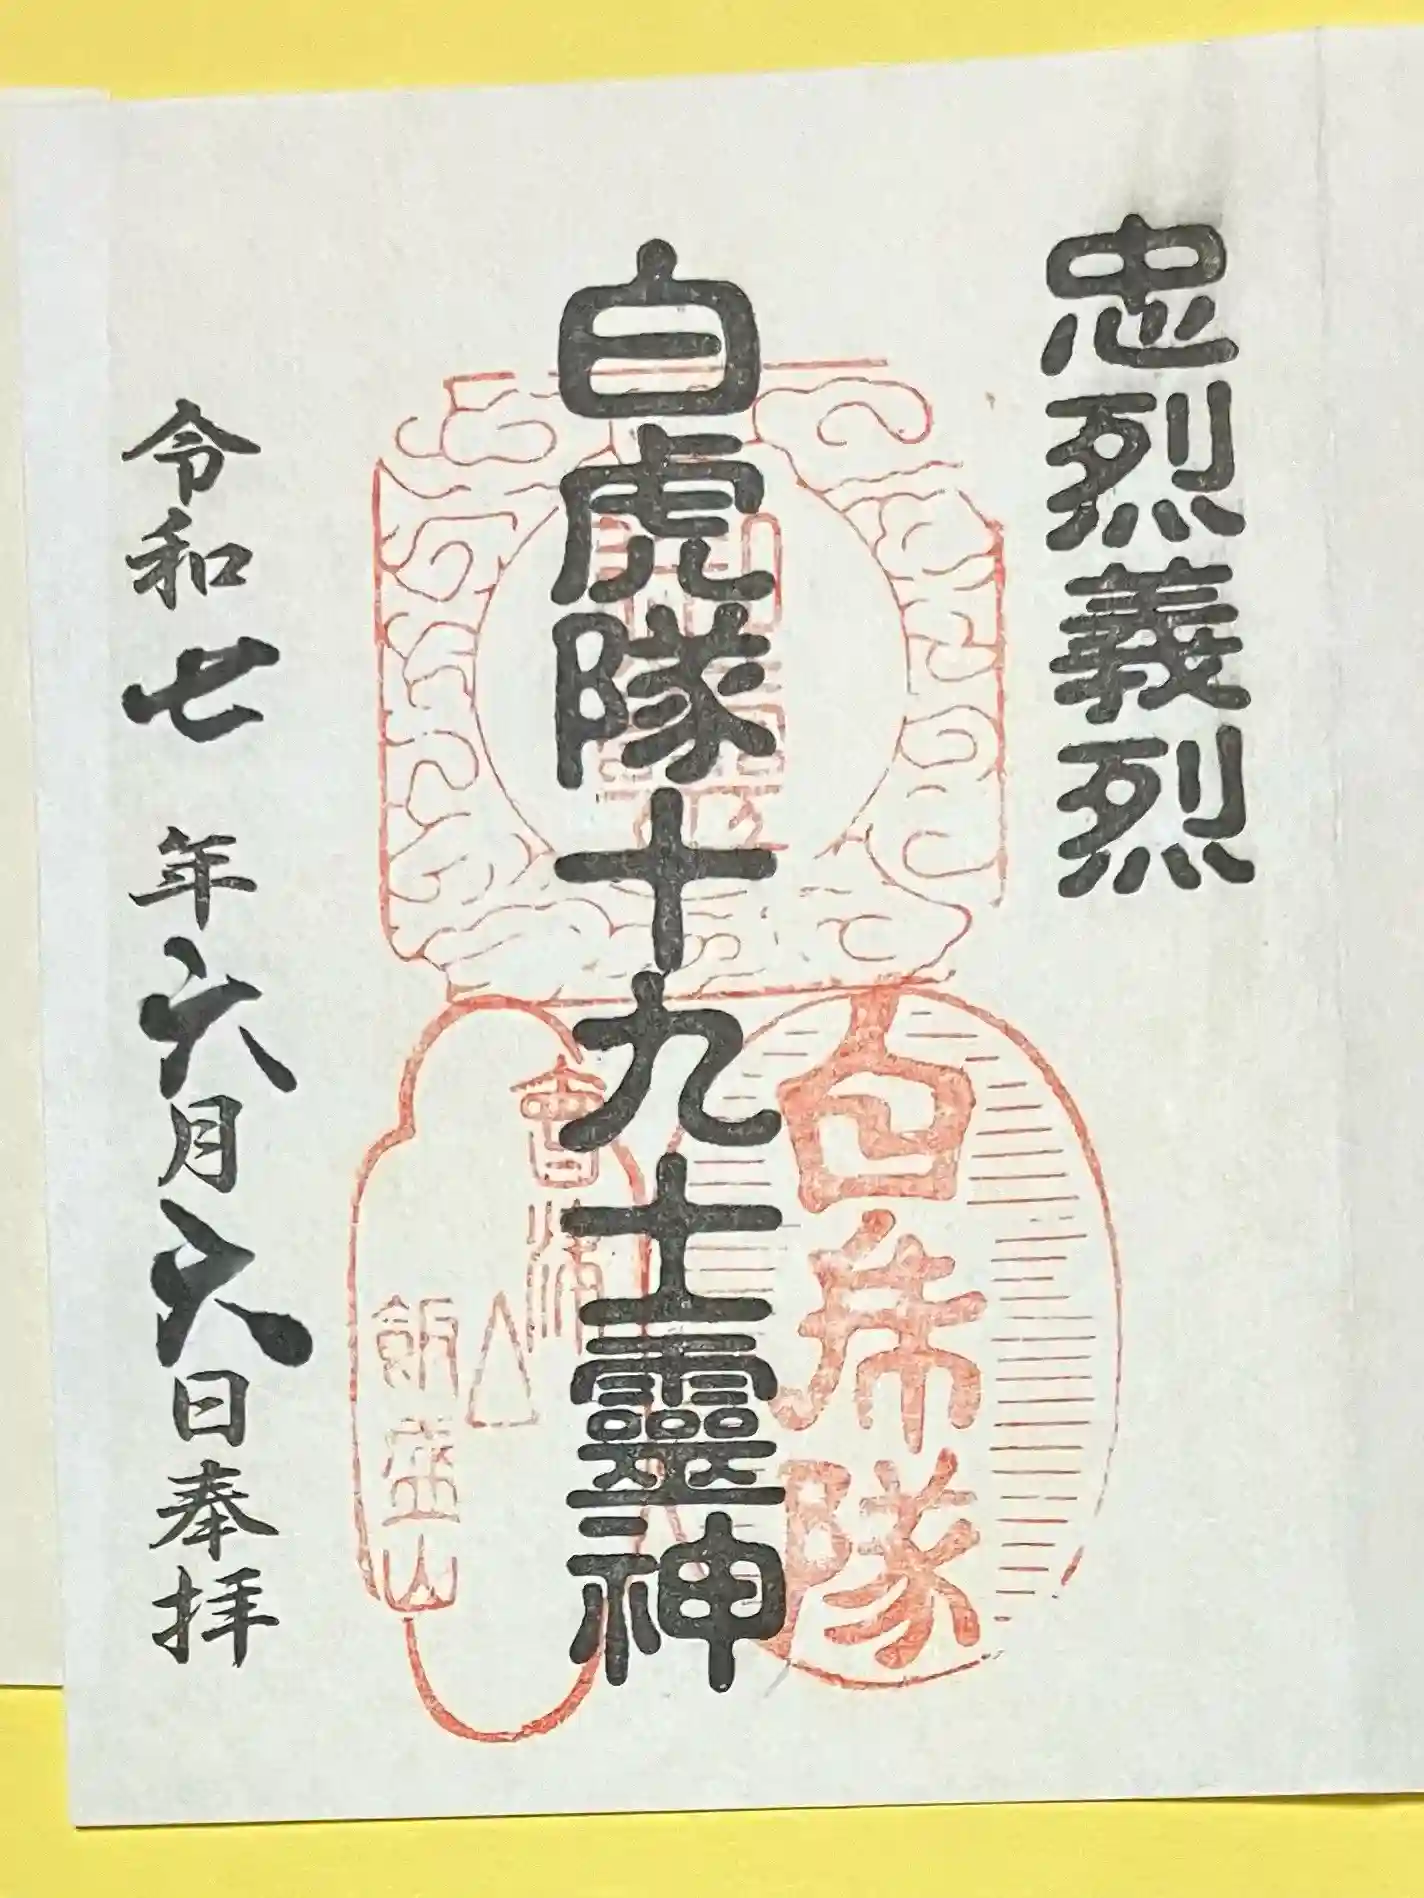 忠烈義烈
白虎隊十九士靈神
白虎隊
會津
飯盛山
令和七年六月六日奉拝